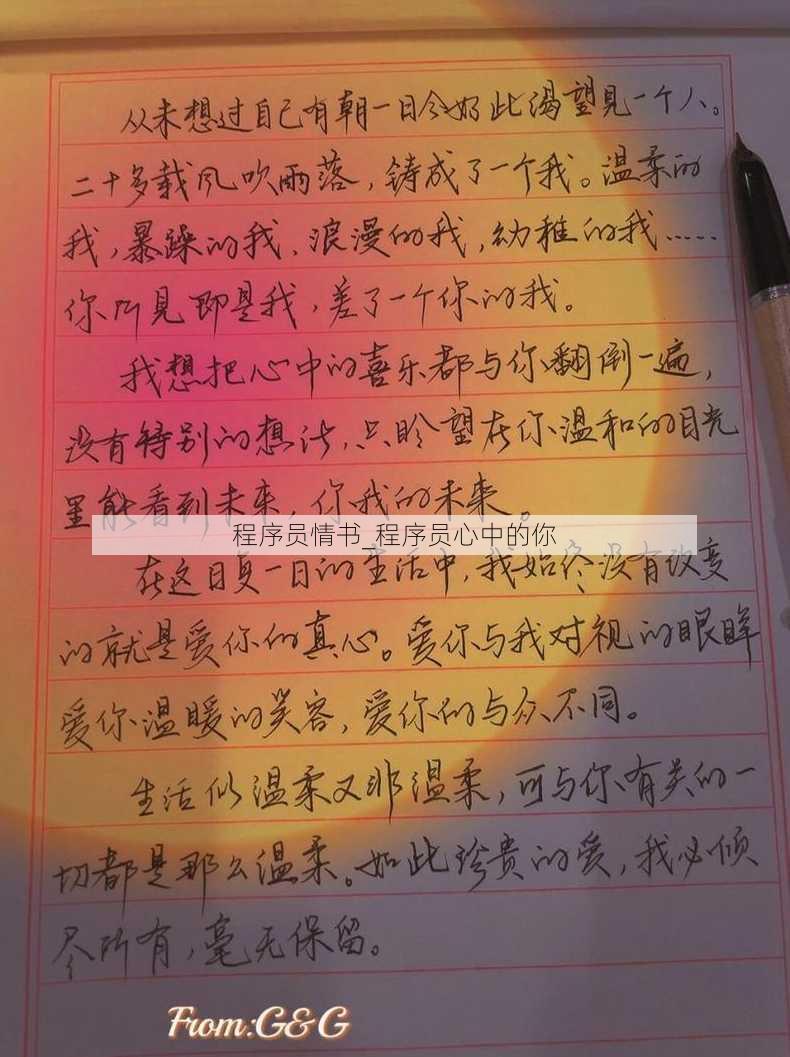 从未想过自己有朝一日会如此渴望见一个人。
二十多载风吹雨落，铸成了一个我。温柔的
我，暴躁的我、浪漫的我，幼稚的我……
你所见即是我，差了一个你的我。
我想把心中的喜乐都与你翻倒一遍，
没有特别的想法，只盼望在你温和的目光
里能看到未来，你我的未来。
程序员情书_程序员心中的你
在这日复一日的生活中，我始终没有改变
的就是爱你的真心。爱你与我对视的眼眸
爱你温暖的笑容，爱你的与众不同。
生活似温柔又非温柔，可与你有关的一
切都是那么温柔。如此珍贵的爱，我必倾
尽所有，毫无保留。
From:G&G